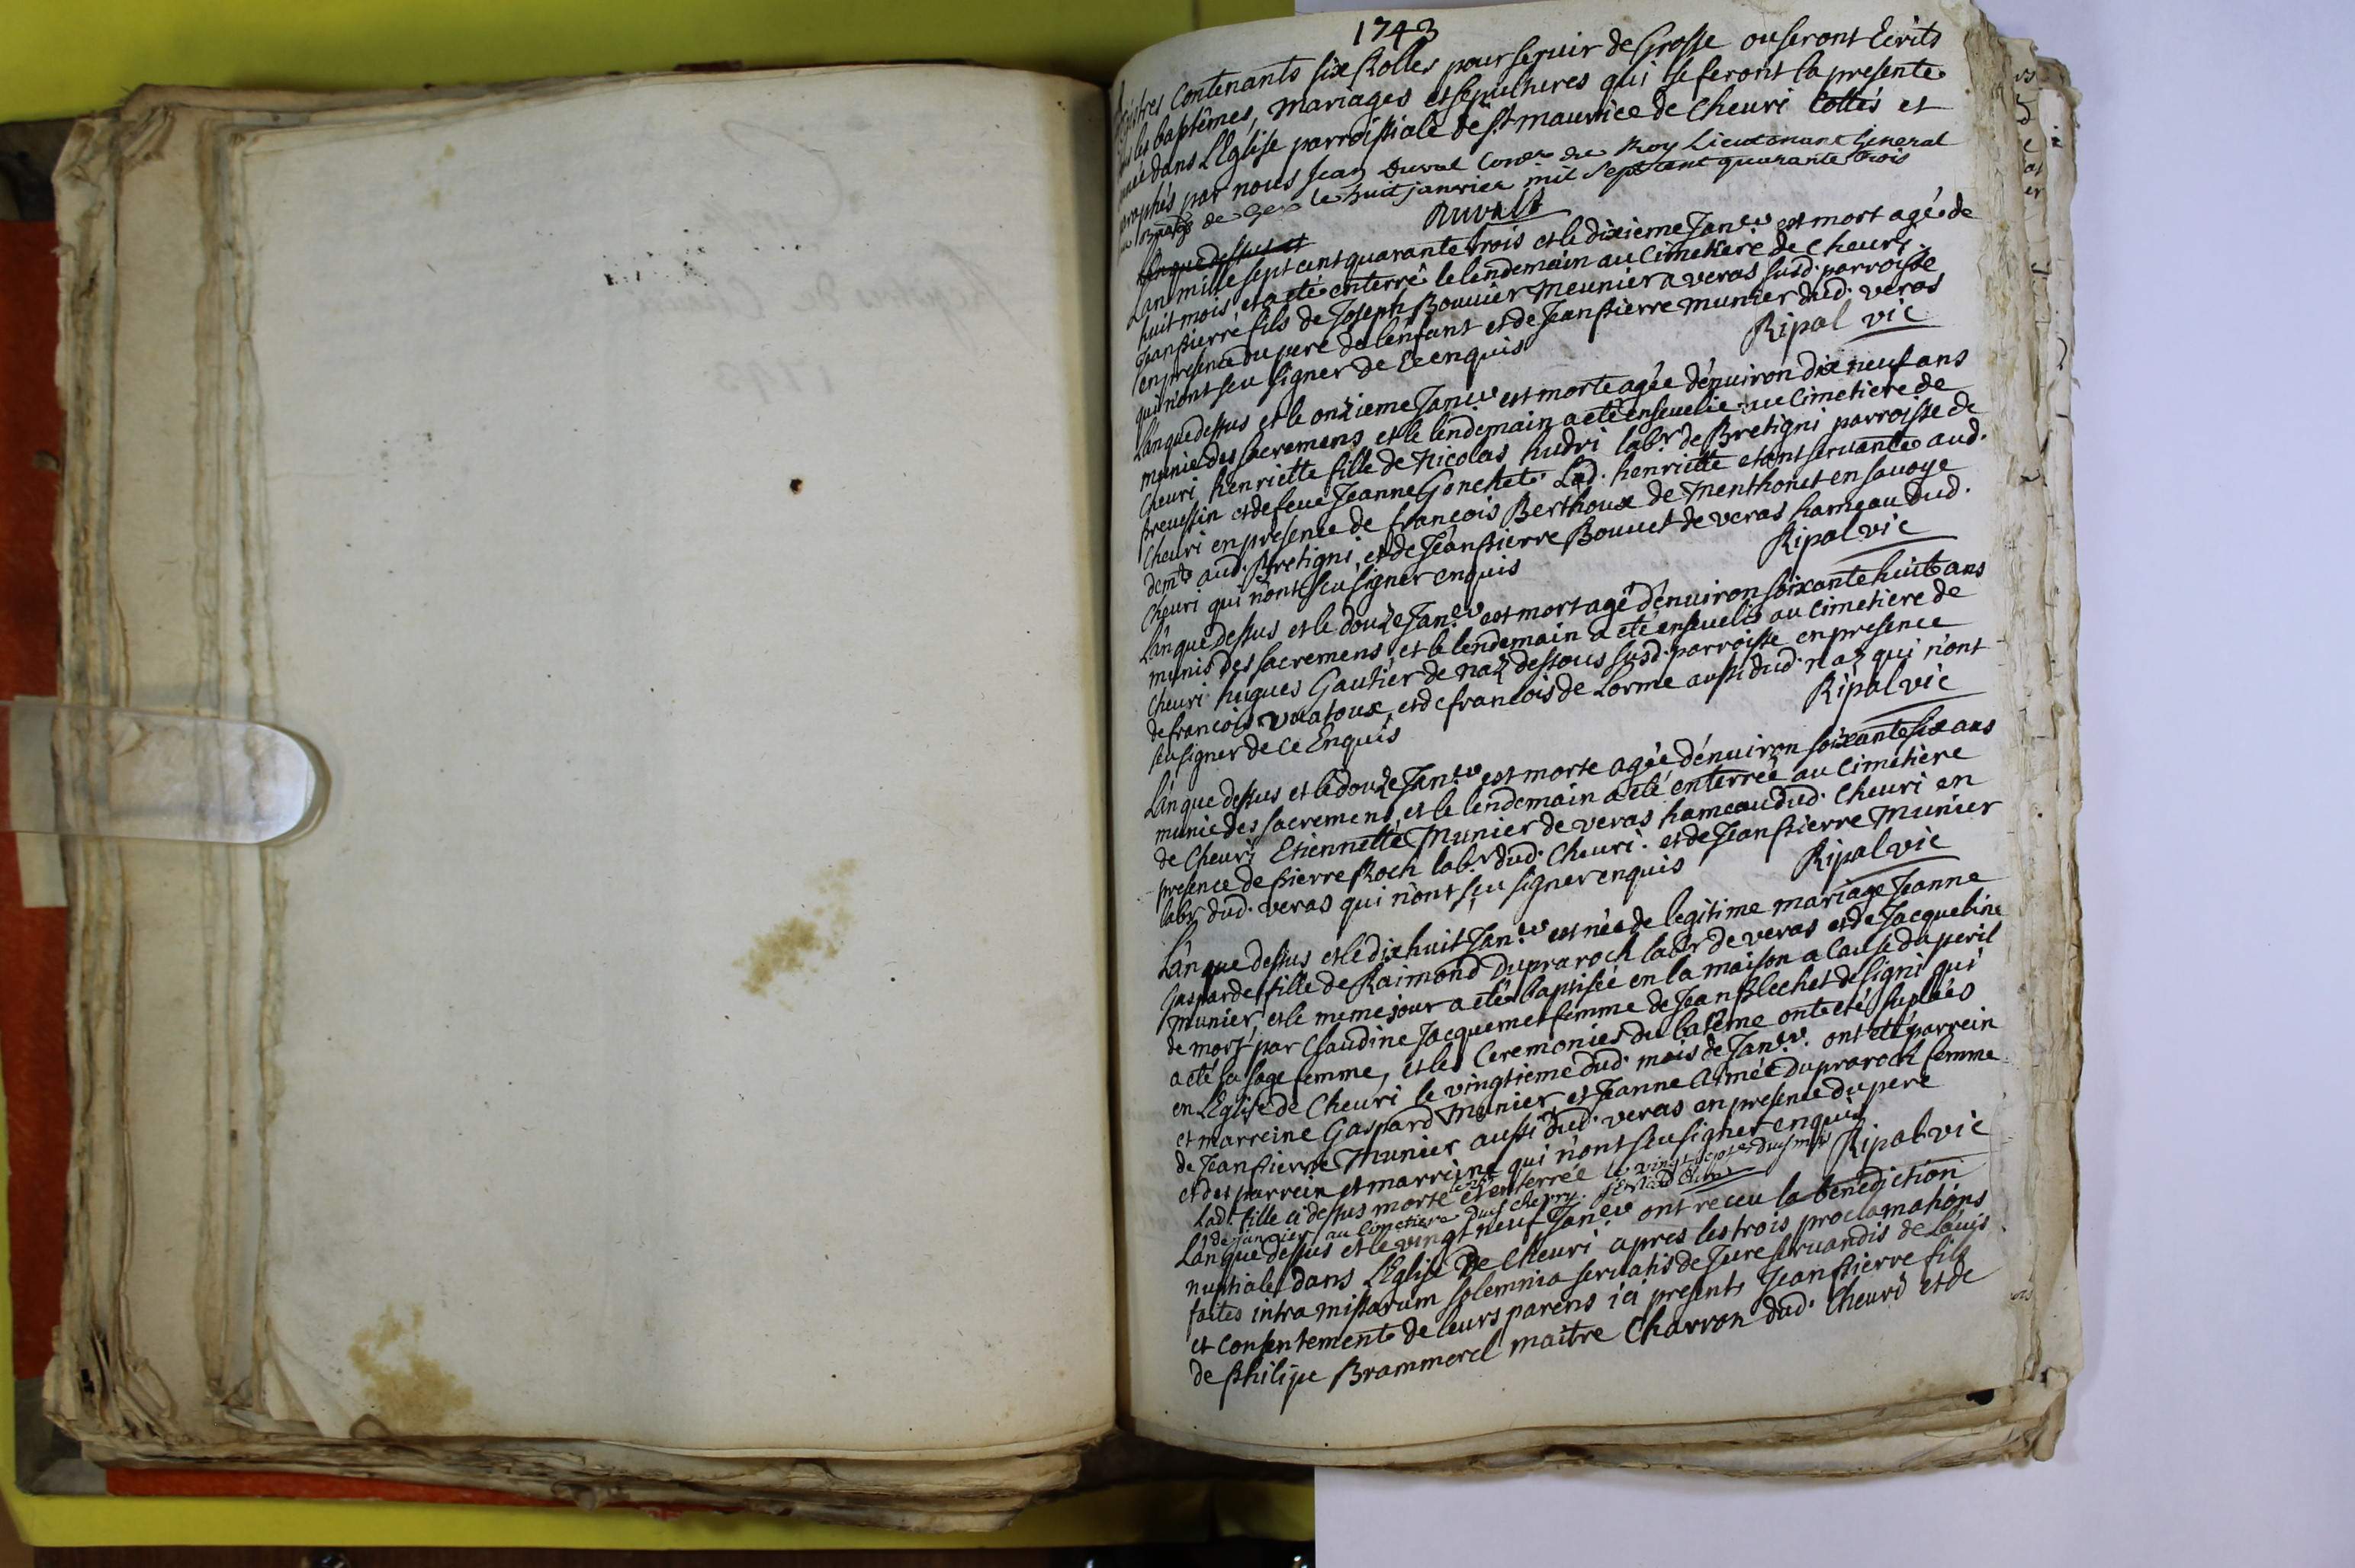 1743
Registres Contenants six Rolles pour servir de Grosse ou seront Ecrits
tous les baptêmes, mariages et sepultures qui se feront la presente
année dans L'Eglise parroissiale de St maurice de Cheuri Cottés et
paraphés par nous Jean Duval Coner du Roy Lieutenant General
au Bailliage de Gex le huit janvier mil Sept cent quarante trois
Duval
L'an que dessus et
L'an mille sept cent quarante trois et le dixieme Janer est mort agé de
huit mois, et a ete enterré le lendemain au Cimetiere de Cheuri
Jean Pierre fils de Joseph Bouvier Meunier a veras susd. parroisse
en presence du pere de l'enfant et de Jean Pierre munier dud. veras
qui n'ont seu signer de Ce enquis
Ripal vic
L'an que dessus et le onzieme Janer est morte agée d'enuiron dix neuf ans
munie des sacremens et le lendemain a eté enseuelie au Cimetiere de
Cheuri henriette fille de Nicolas hudri labr de Bretigni parroisse de
preuessin et de feue Jeanne Gonchet. Lad. henriette etant servante aud.
Cheuri en presence de françois Berthoux de Menthonet en sauoye
demt aud. Bretigni, et de Jean Pierre Bouuet de veras hameau dud.
Cheuri qui n'ont seu signer enquis
Ripal vic
L'an que dessus et le douze Janer est mort agé d'enuiron soixante huit ans
munis des sacremens et le lendemain a eté enseuelis au Cimetiere de
Cheuri hugues Gautier de naz dessous susd. parroisse en presence
de françois vuatoux, et de francois de Lorme aussi dud. naz qui n'ont
seu signer de Ce Enquis
Ripal vic
L'an que dessus et le douze Janer est morte agée d'enuiron soixante six ans
munie des sacremens, et le lendemain a eté enterrée au Cimetiere
de Cheuri Etiennette Munier de veras hameau dud. Cheuri en
presence de Pierre Roch labr dud. Cheuri. et de Jean Pierre Munier
labr dud. veras qui n'ont seu signer enquis
Ripal vic
L'an que dessus et le dix huit Janer est née de legitime mariage Jeanne
Gasparde fille de Raimond Dupraroch labr de veras et de Jacqueline
Munier, et le meme jour a eté baptisée en la maison a Cause du peril
de mort par Claudine Jacquemet femme de Jean Blechet de signi qui
a eté la sage femme, et les Ceremonies du batême ont eté suplées
en L'Eglise de Cheuri le vingtieme dud. mois de Janer. ont eté parrein
et marreine Gaspard Munier et Jeanne Aimée Dupraroch femme
de Jean Pierre Munier aussi dud. veras en presence du pere
et des parrein et marreine qui n'ont seu signer enquis
Ripal vic
Lad. fille ci dessus morte et enterrée le vingt sept dud mois
de janvier au Cimetiere dud Chevry.
L'an que dessus et le vingt neuf Janer ont receu la benediction
nuptiale dans L'Eglise de Cheuri apres les trois proclamations
faites intra missarum solemnia seruatis de Jure seruandis de L'auis
et Consentement de leurs parens ici present Jean Pierre fils
de Philipe Brammerel maitre Charron dud. Cheuri et de